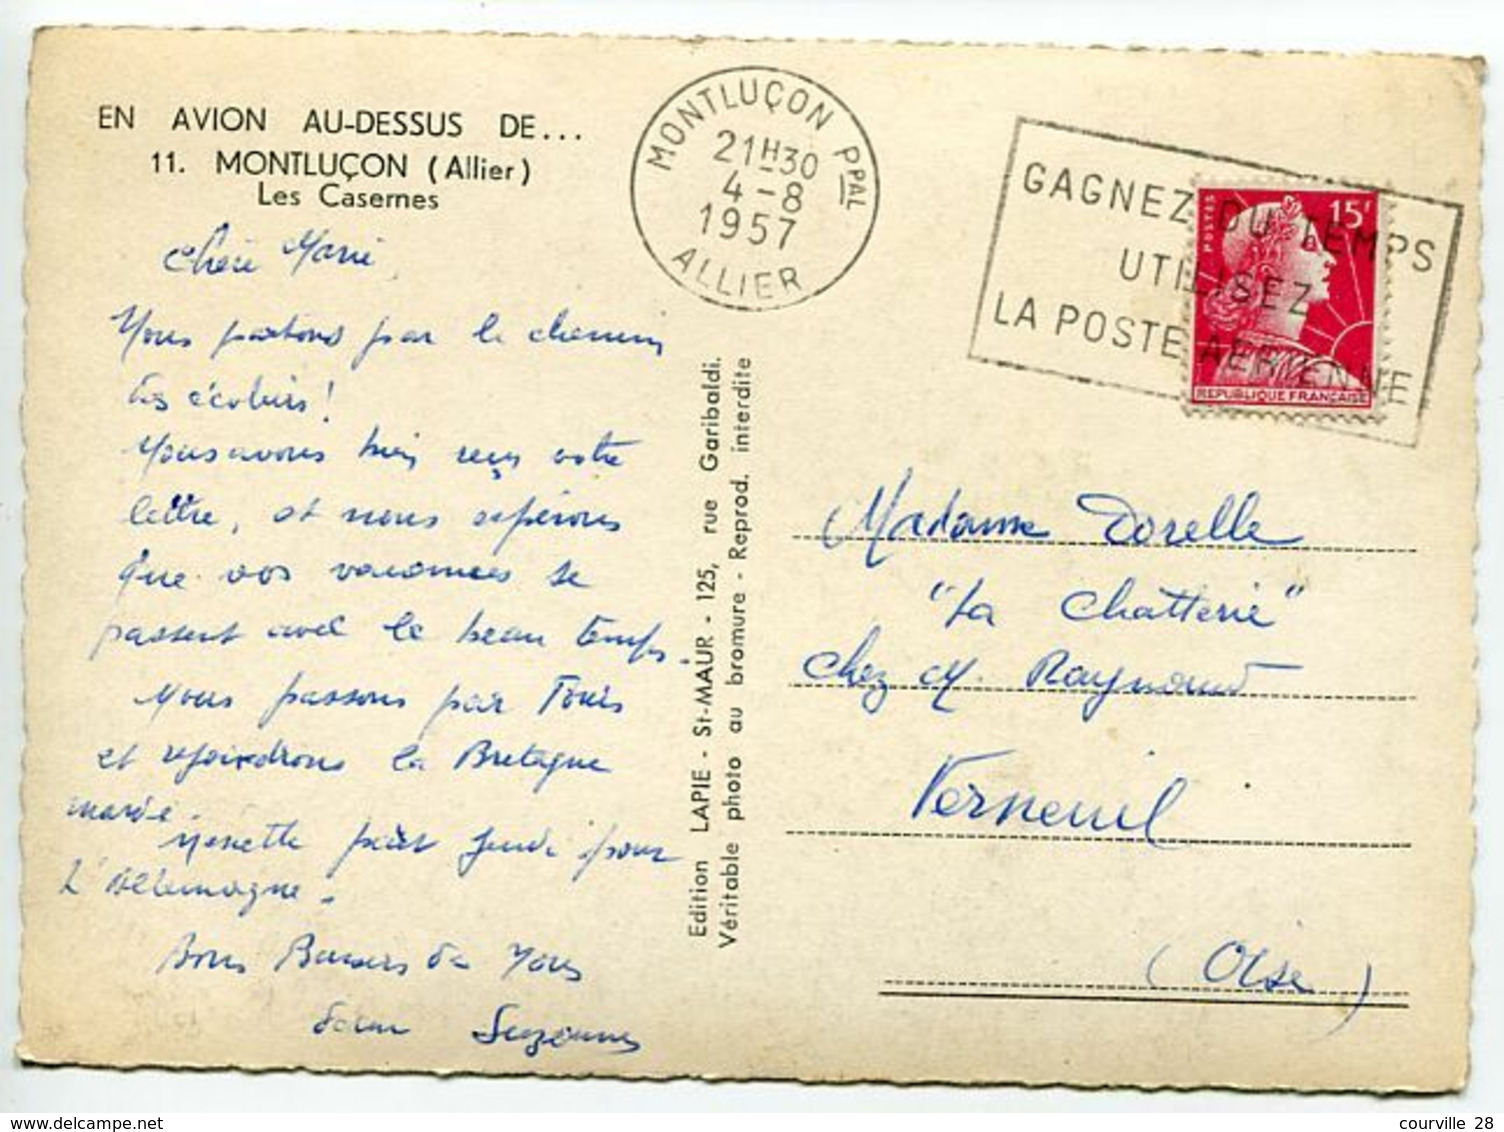 EN AVION AU-DESSUS DE...
11. MONTLUÇON (Allier)
Les Casernes
MONTLUÇON PPAL
21H30
4-8
1957
ALLIER
GAGNEZ DU TEMPS
UTILISEZ
LA POSTE AERIENNE
POSTES
15F
REPUBLIQUE FRANÇAISE
Chère Marie,
Nous partons par le chemin
des écoliers !
Nous avons bien reçu votre
lettre, et nous espérons
que vos vacances se
passent avec le beau temps.
Nous passons par Tours
et rejoindrons la Bretagne
mardi
Ninette part jeudi pour
L'Allemagne.
Bons Baisers de Nous
Suzanne
Edition LAPIE - St-MAUR - 125, rue Garibaldi.
Véritable photo au bromure - Reprod. interdite
Madame Dorelle
"La Chatterie"
chez M. Raymond
Verneuil
(Oise)
courville 28